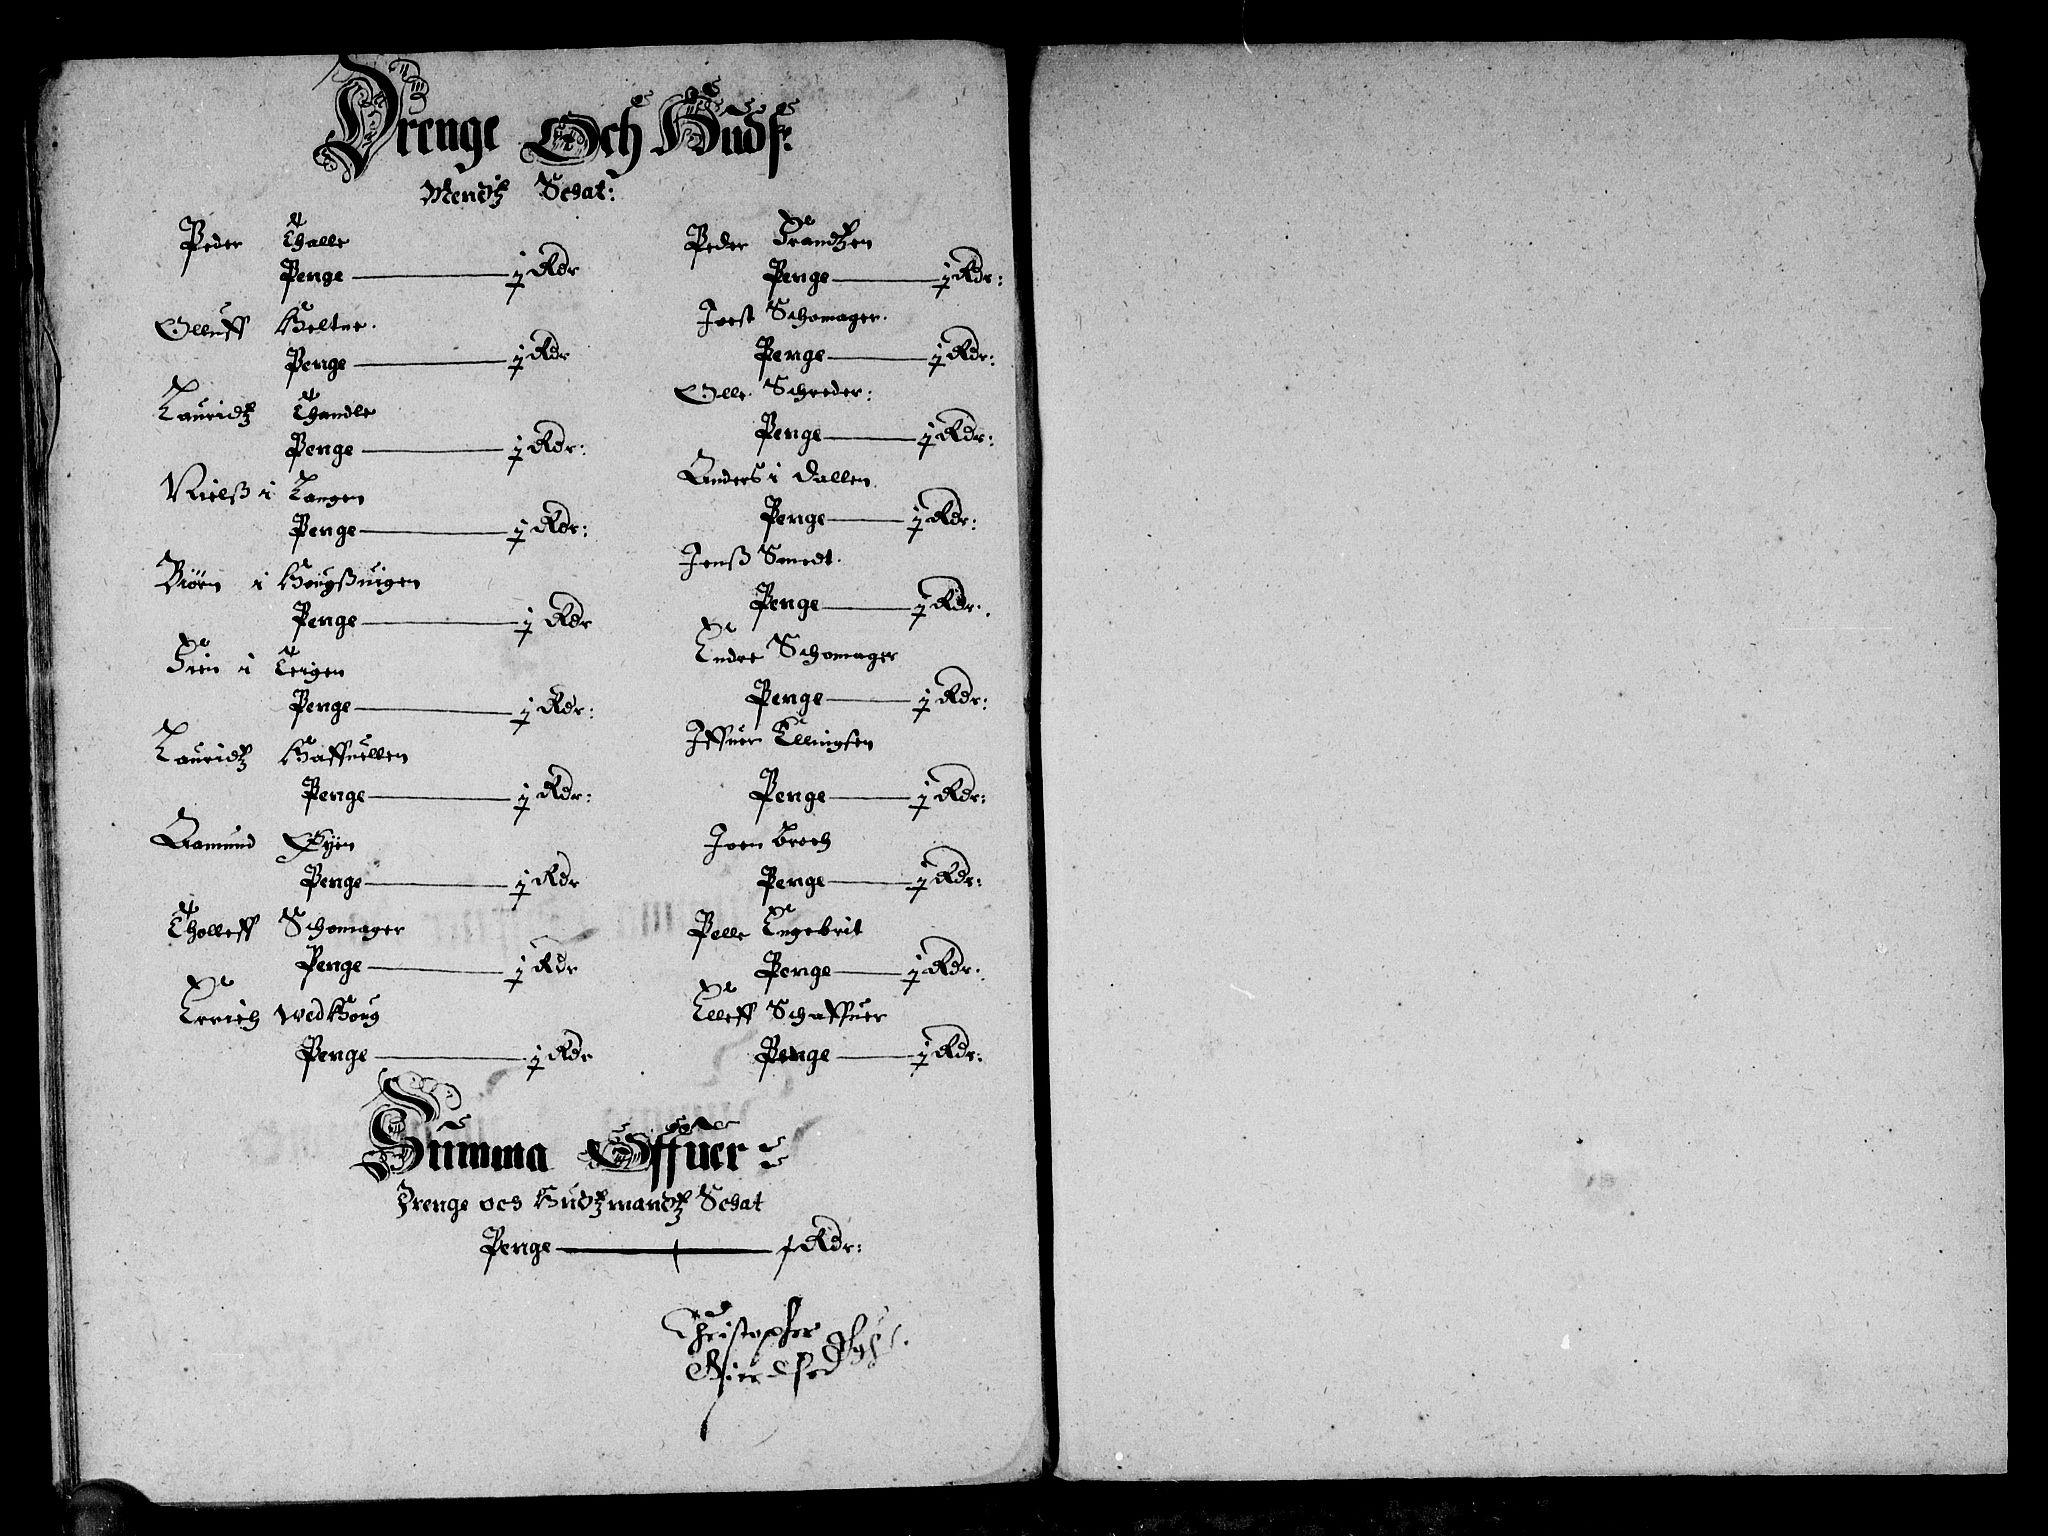 Drenge Och Huds
Mendtz Schat:
Peder Thalle
Penge — j Rdr
Olluff Heltne.
Penge — j Rdr
Lauridtz Thandle
Penge — j Rdr:
Nielß i Langen
Penge — j Rdr:
Biörn i Hougßuigen
Penge — j Rdr
Fien i Teigen
Penge — j Rdr:
Lauridtz Haffuellen
Penge — j Rdr:
Aamund Øyen
Penge — j Rdr
Tholleff Schomager
Penge — j Rdr
Errich wed Houg
Penge — j Rdr
Peder Frandtzen
Penge — j Rdr:
Joest Schomager.
Penge — j Rdr:
Olle Schreder:
Penge — j Rdr:
Anders i Dallen
Penge — j Rdr:
Jenß Smedt.
Penge — j Rdr:
Endre Schomager
Penge — j Rdr:
Iffuer Ellingsen
Penge — j Rdr:
Joen Broch
Penge — j Rdr:
Pelle Engebrit
Penge — j Rdr:
Elleff Schaffuer
Penge — j Rdr:
Summa Offuer
Drenge och Hudtzmandtz Schat
Penge — Rdr:
Christopher